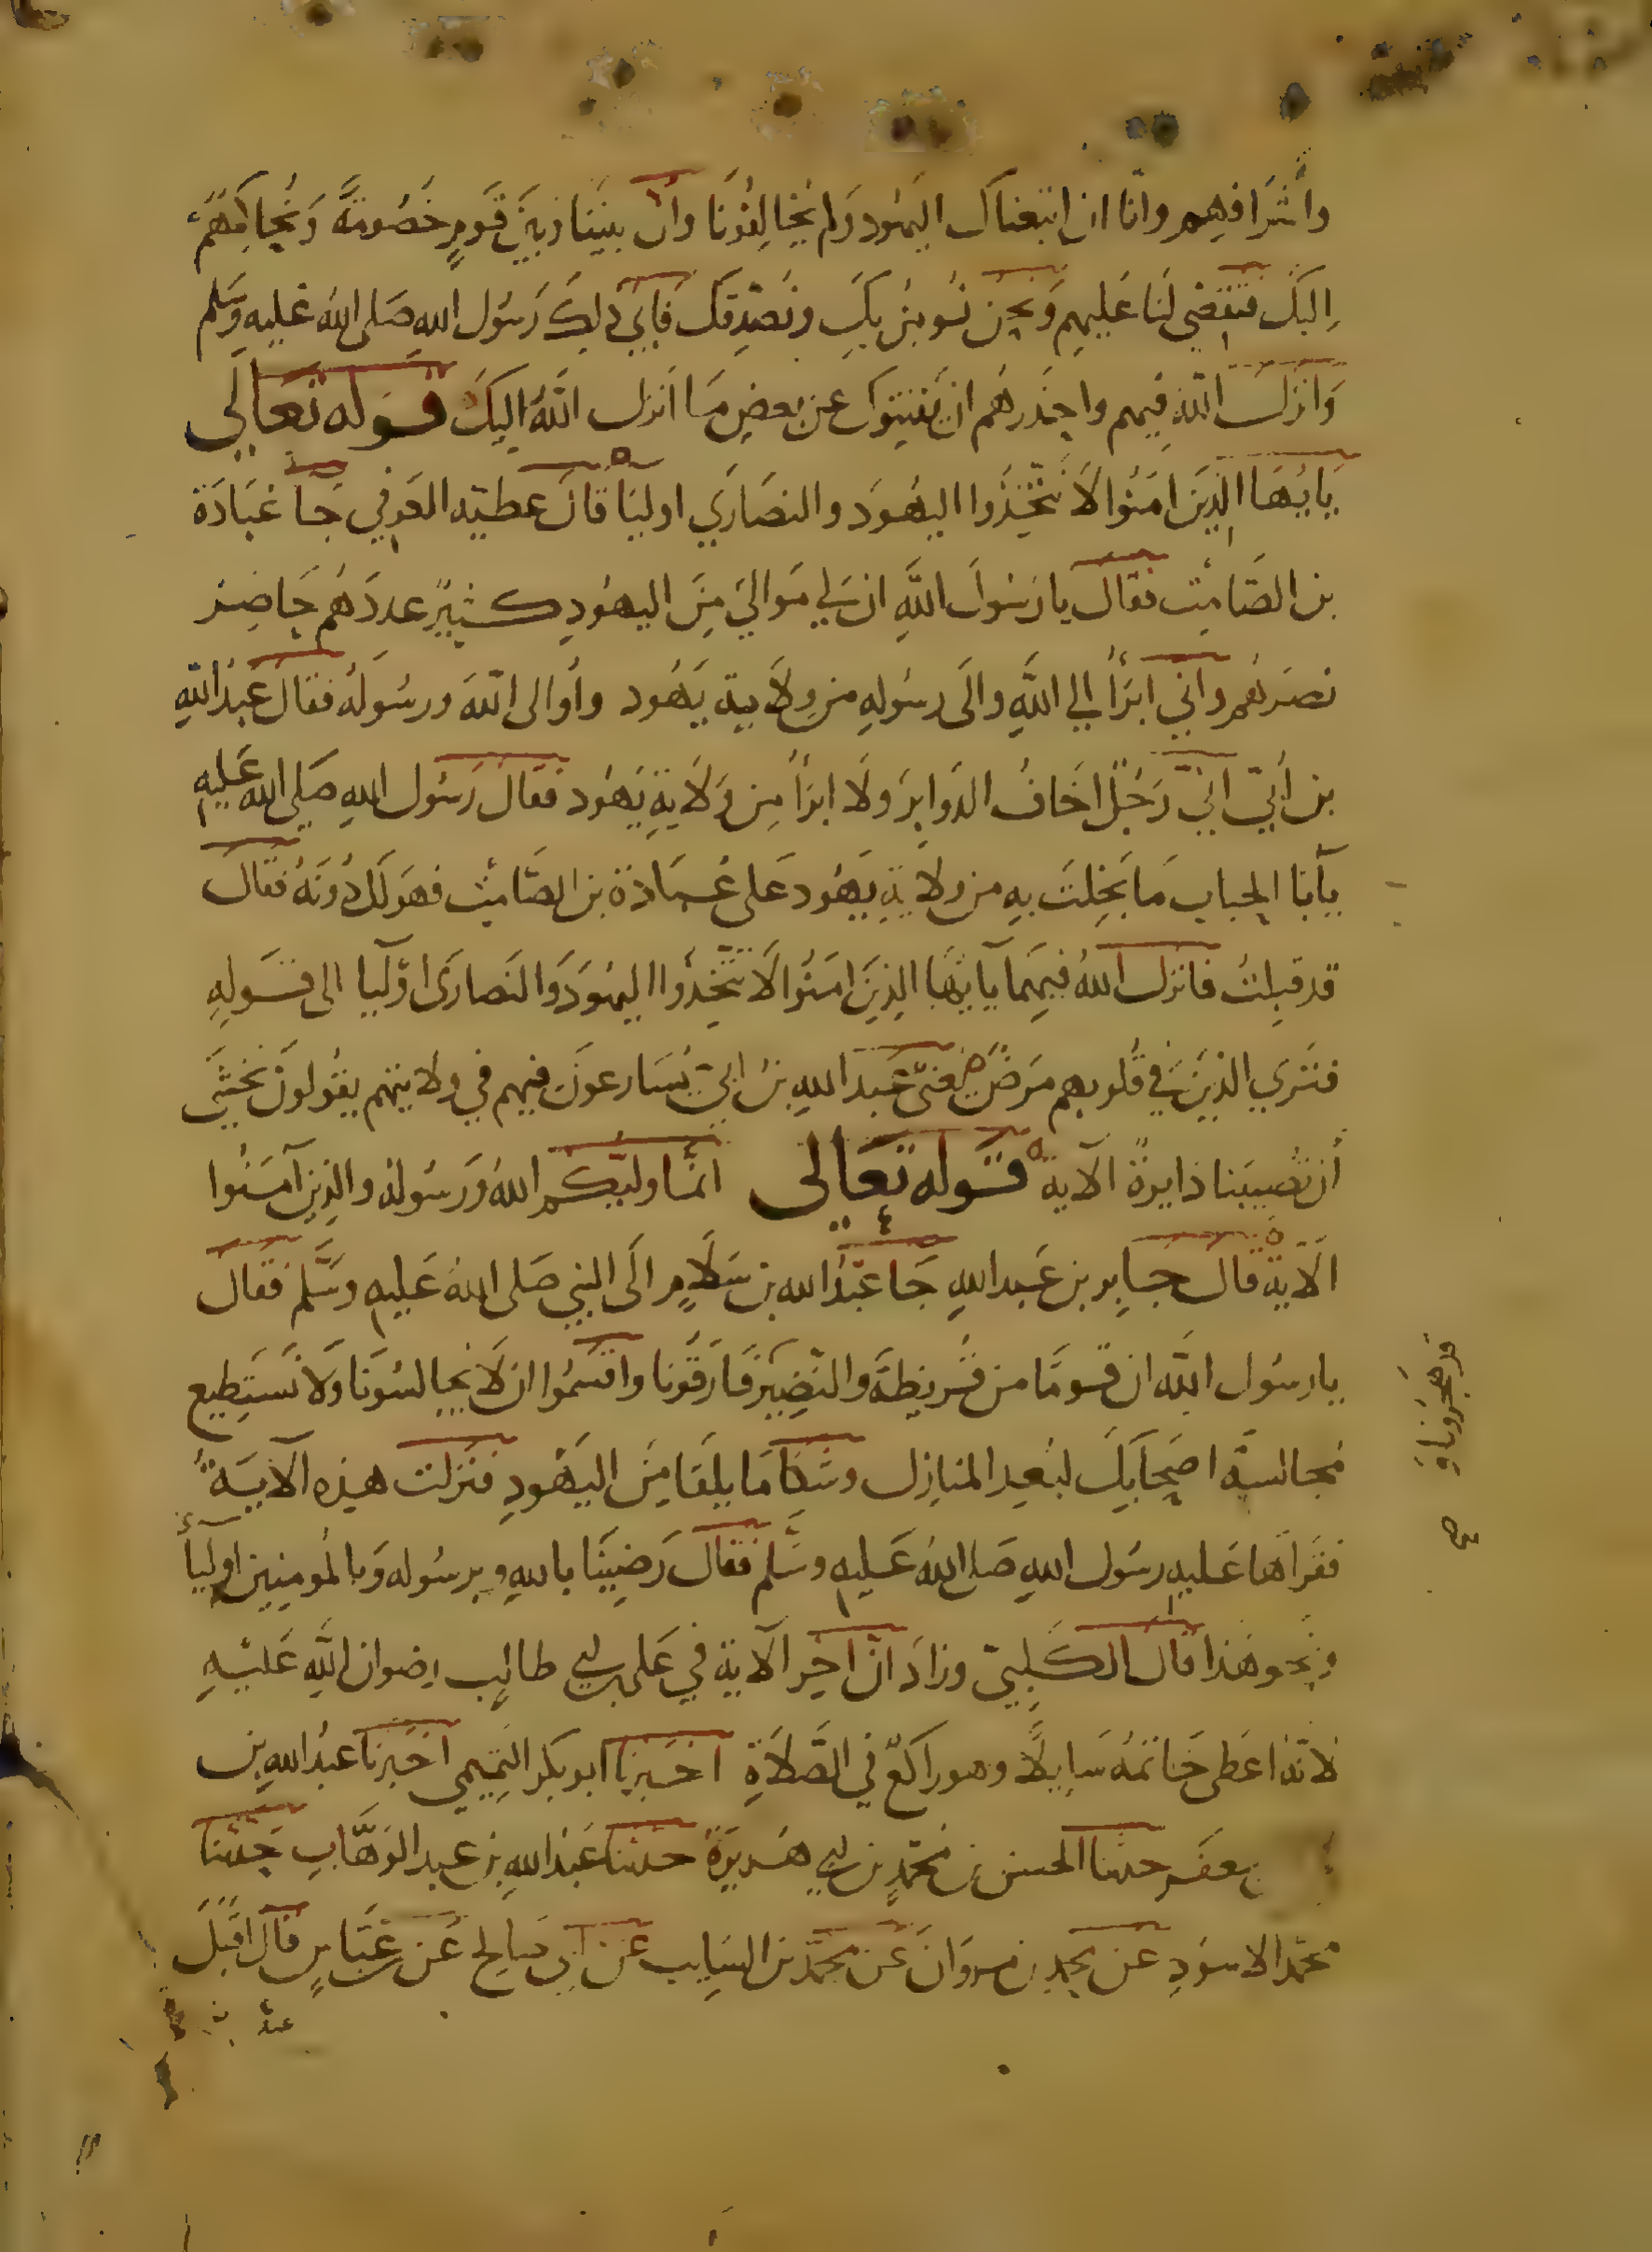 وأشرافهم وانا ان اتبعناك اليهود ولم يخالفونا وان بيننا وبين قوم خصومة ونحاكمهم
اليك فتقضي لنا عليهم ونحن نومن بك ونصدقك فأبى ذلك رسول الله صلى الله عليه وسلم
وانزل الله فيهم واحذرهم ان يفتنوك عن بعض ما انزل الله اليك قوله تعالى
يايها الذين امنوا لا تتخذوا اليهود والنصارى اوليا قال عطية العوفي جا عبادة
بن الصامت فقال يا رسول الله ان لي موالي من اليهود كثير عددهم حاضر
نصرهم واني ابرأ الي الله والى رسوله من ولاية يهود وأوالى الله ورسوله فقال عبد الله
بن أبيّ اني رجل اخاف الدواير ولا ابرأ من ولاية يهود فقال رسول الله صلى الله عليه
يآبا الحباب ما بخلت به من ولاية يهود على عبادة بن الصامت فهو لك دونه فقال
قد قبلت فانزل الله فيهما يآيها الذين امنوا لا تتخذوا اليهود والنصارى اوليا الى قوله
فترى الذين في قلوبهم مرض يعني عبد الله بن ابيّ يسارعون فيهم في ولايتهم يقولون نخشى
أن تصيبنا دايرة الآية قوله تعالى انما وليكم الله ورسوله والذين آمنوا
الآية قال جابر بن عبد الله جا عبد الله بن سلام الى النبي صلى الله عليه وسلم فقال
يا رسول الله ان قوما من قريظة والنضير فارقونا واقسموا ان لا يجالسونا ولا نستطيع
مجالسة اصحابك لبعد المنازل وشكا ما يلقا من اليهود فنزلت هذه الآية
فقرأها عليه رسول الله صلى الله عليه وسلم فقال رضينا بالله وبرسوله وبالمومنين اوليأ
ونحو هذا قال الكلبيّ وزاد انّ اخر الآية في علي بن ابي طالب رضوان الله عليه
لانه اعطى خاتمه سايلا وهو راكع في الصلاة اخبرنا ابو بكر التميمي اخبرنا عبد الله بن
جعفر حدثنا الحسن بن محمد بن ابي هريرة حدثنا عبد الله بن عبد الوهاب حدثنا
محمد الاسود عن محمد بن مروان عن محمد بن السايب عن ابي صالح عن عباس قال اقبل
قد هجرونا و
صح